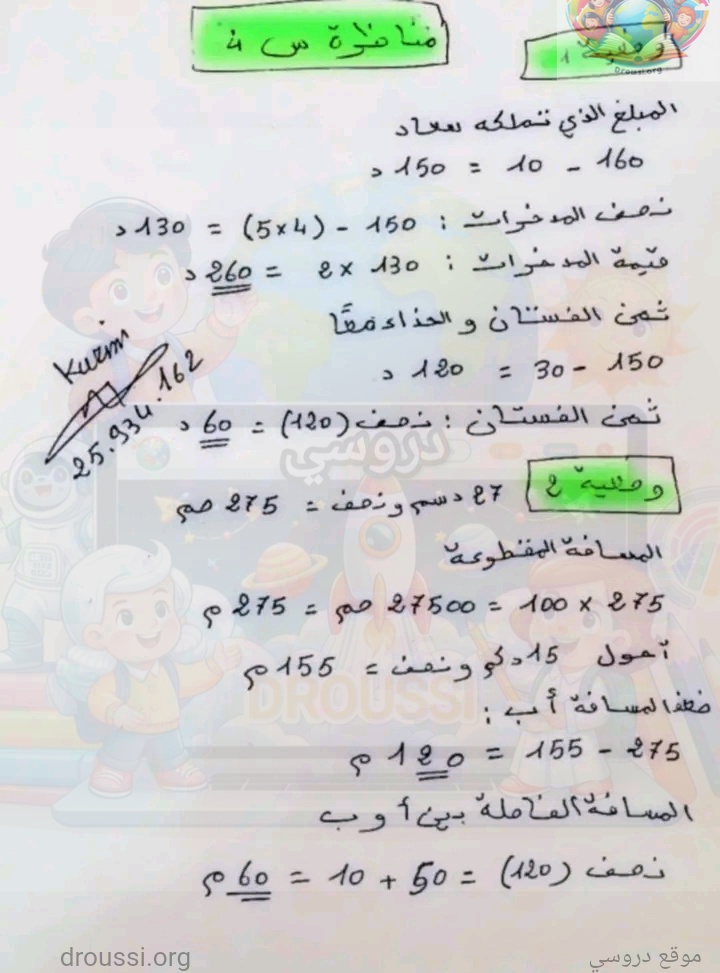 مناظرة س 4
وضعية 1
Droussi.org
المبلغ الذي تملكه سعاد
160 - 10 = 150 د
نصف المدخرات : 150 - (4×5) = 130 د
قيمة المدخرات : 130 × 2 = 260 د
ثمن الفستان و الحذاء معًا
150 - 30 = 120 د
ثمن الفستان : نصف (120) = 60 د
25.934.162
دروسي
وضعية 2
27 دسم ونصف = 275 صم
المسافة المقطوعة
275 × 100 = 27500 صم = 275 م
أحول 15 دكم ونصف = 155 م
ضعف المسافة أ ب :
275 - 155 = 120 م
DROUSSI
المسافة الفاصلة بين أ و ب
نصف (120) = 50 + 10 = 60 م
droussi.org
موقع دروسي